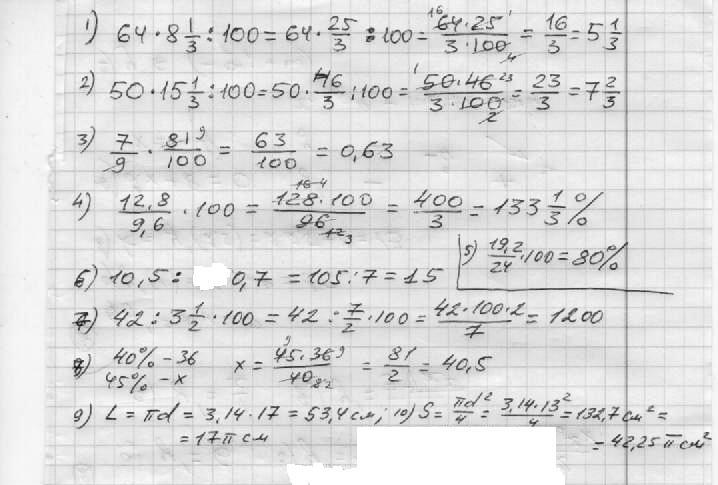 1) 64 · 8 1/3 : 100 = 64 · 25/3 : 100 = 64 · 25 / 3 · 100 = 16/3 = 5 1/3
2) 50 · 15 1/3 : 100 = 50 · 46/3 : 100 = 50 · 46 / 3 · 100 = 23/3 = 7 2/3
3) 7/9 · 81/100 = 63/100 = 0,63
4) 12,8/9,6 · 100 = 128 · 100 / 96 = 400/3 = 133 1/3 %
5) 19,2/24 · 100 = 80%
6) 10,5 : 0,7 = 105 : 7 = 15
7) 42 : 3 1/2 · 100 = 42 : 7/2 · 100 = 42 · 100 · 2 / 7 = 1200
8) 40% – 36
45% – x
x = 45 · 36 / 40 = 81/2 = 40,5
9) L = πd = 3,14 · 17 = 53,4 см;
= 17π см
10) S = πd²/4 = 3,14 · 13²/4 = 132,7 см² =
= 42,25 π см²